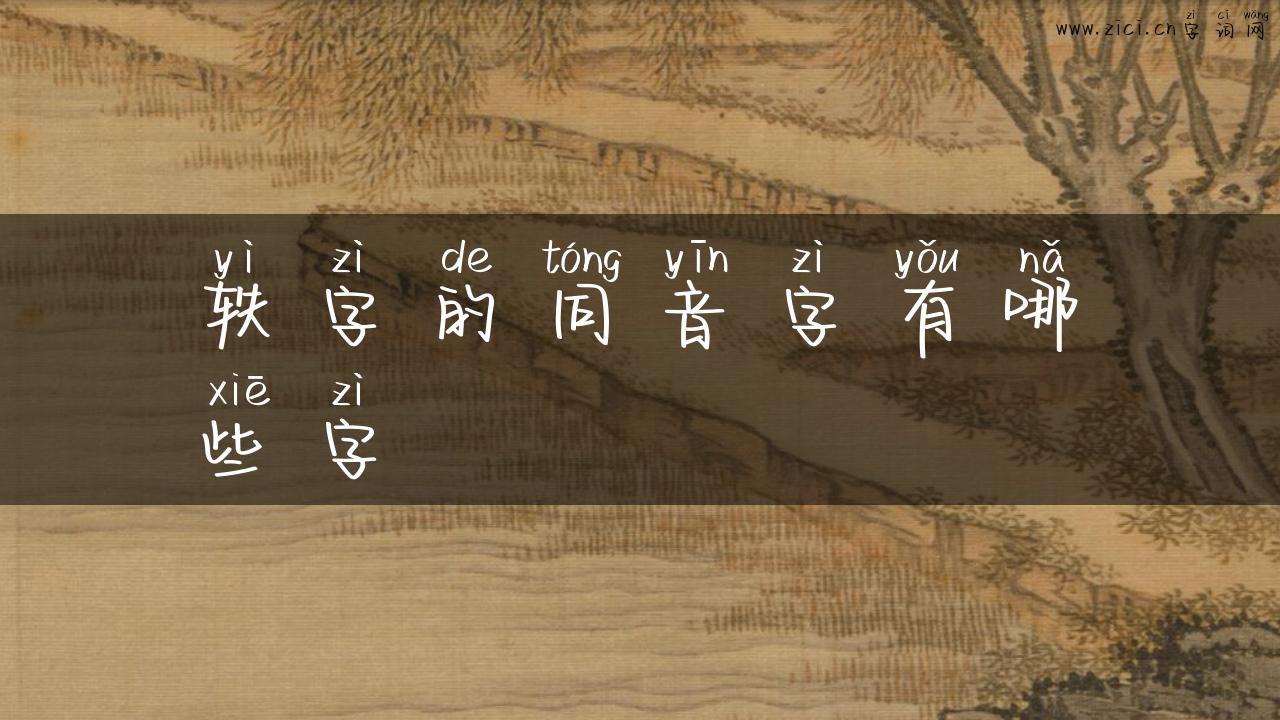 zì cí wǎng
www.zici.cn字词网
yì zì de tóng yīn zì yǒu nǎ
轶字的同音字有哪
xiē zì
些字